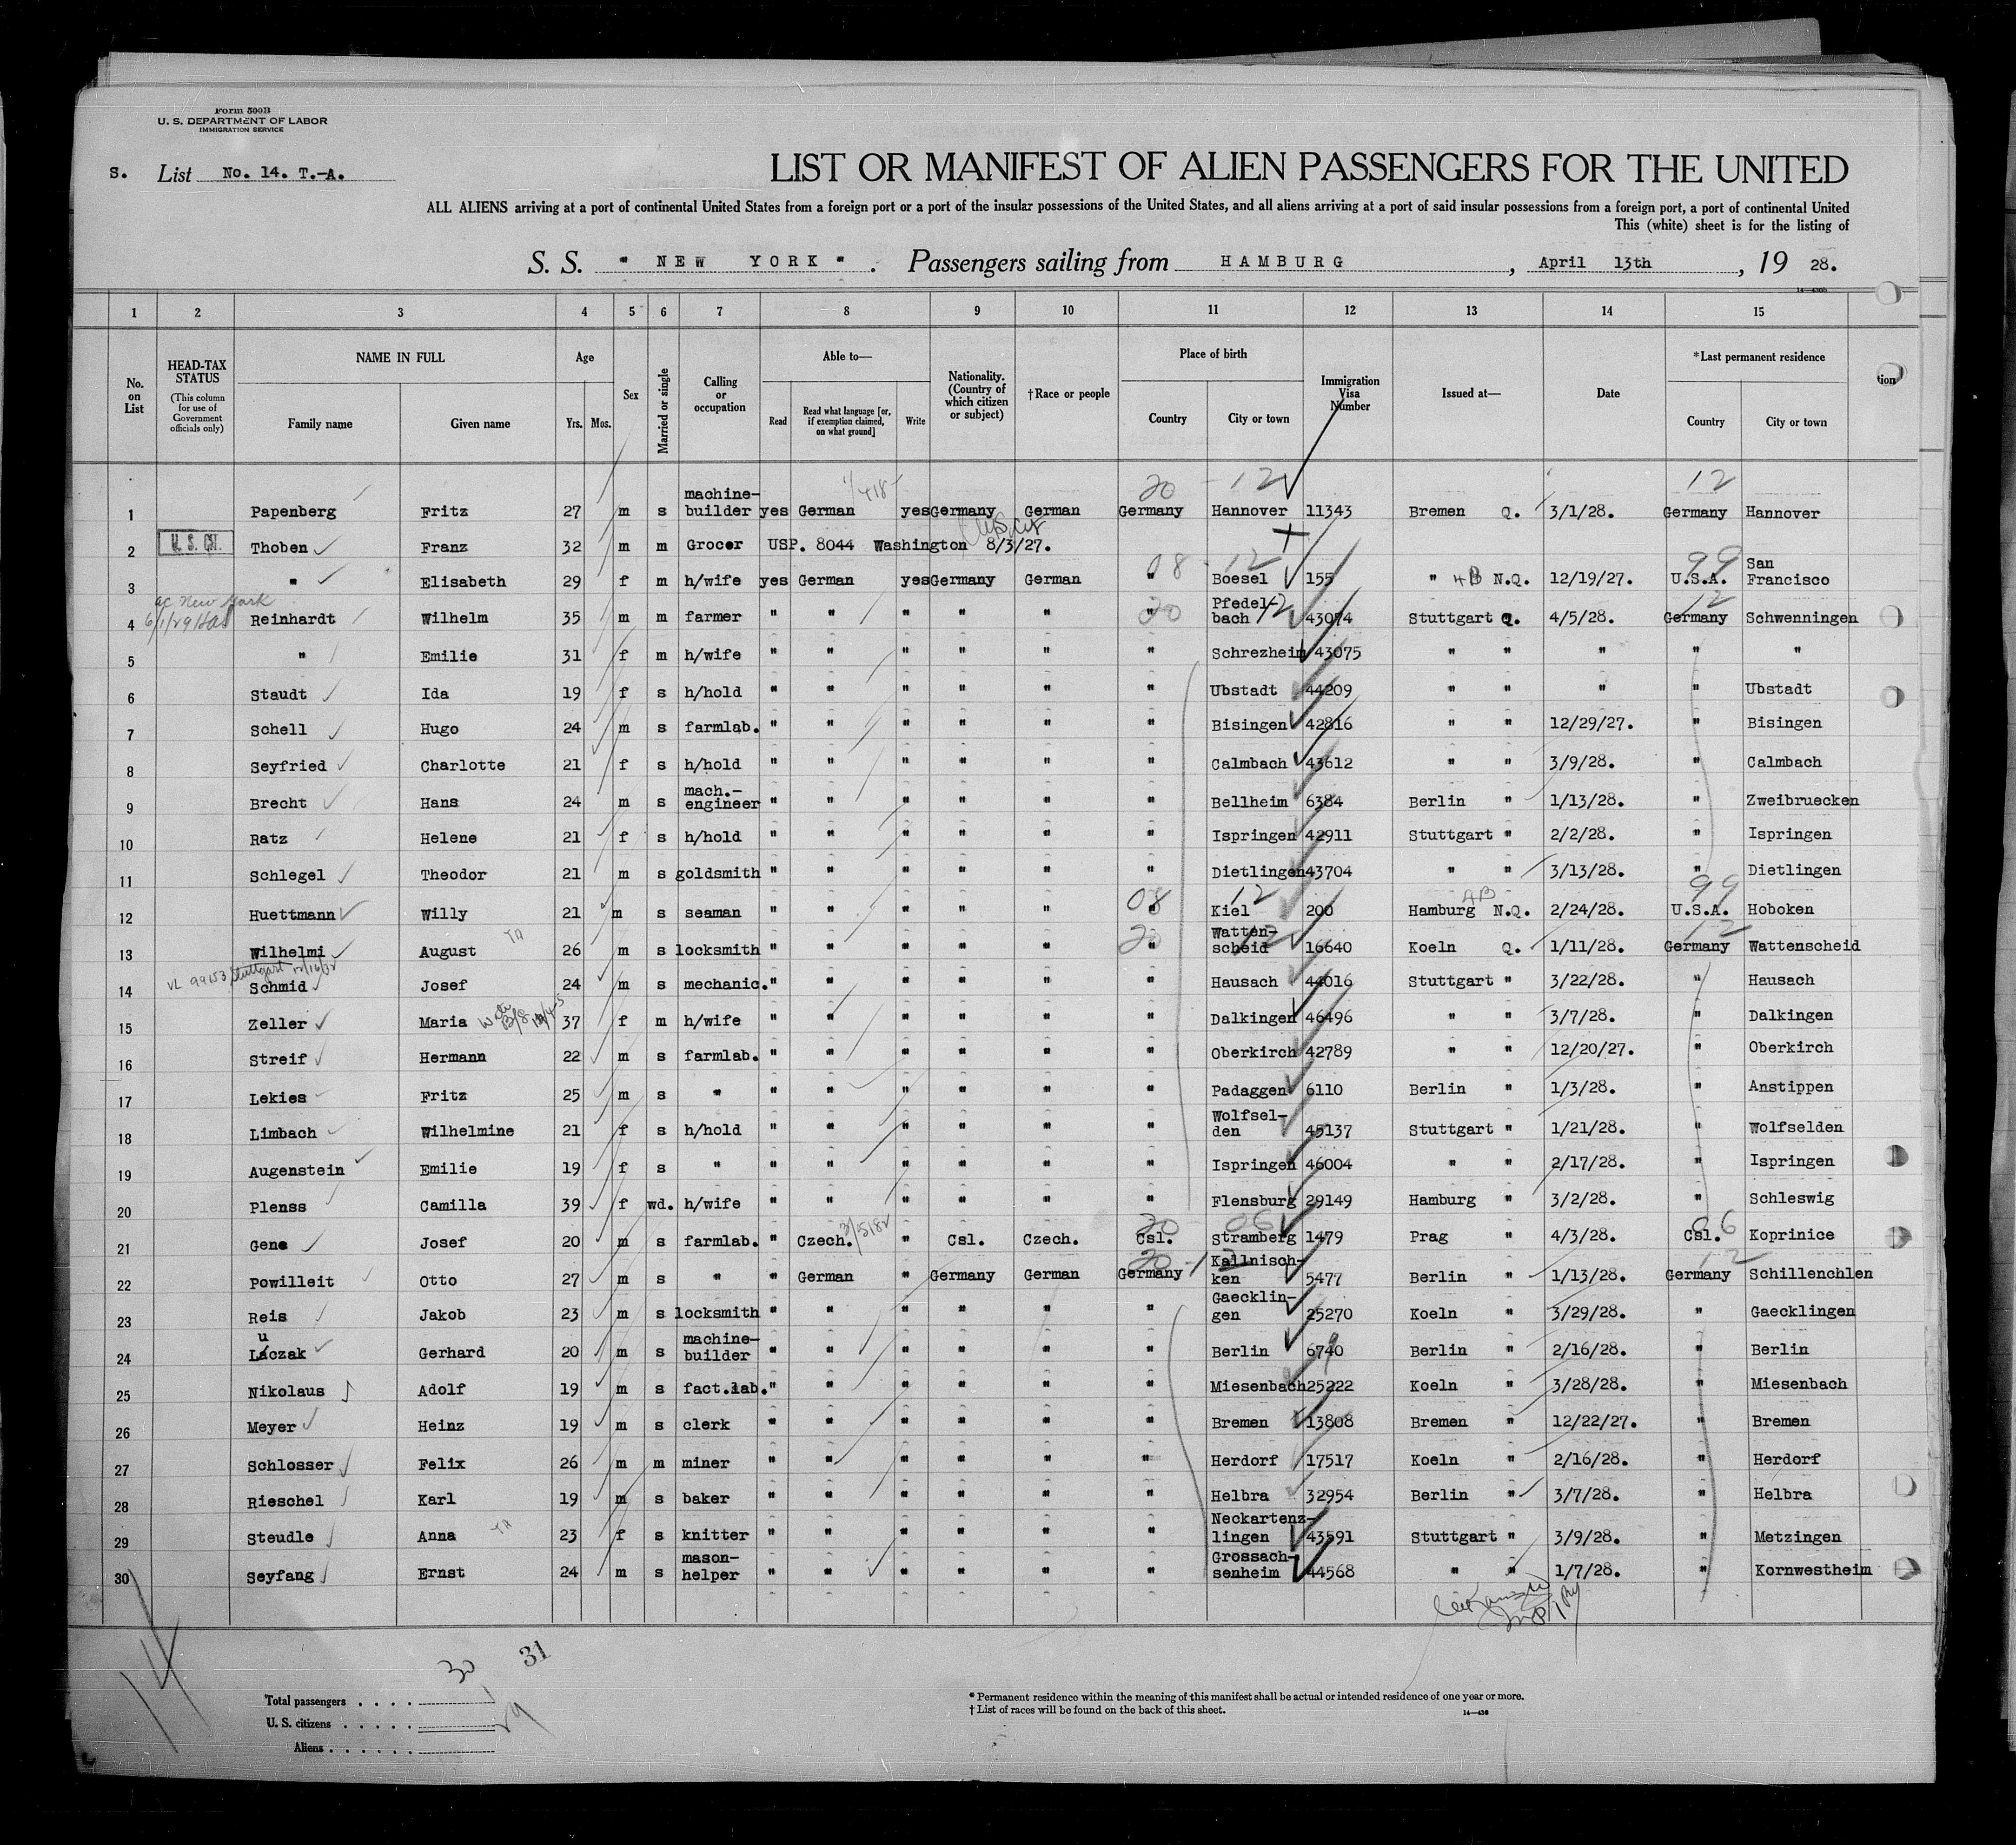 Form 500B
U. S. DEPARTMENT OF LABOR
IMMIGRATION SERVICE
S. List No. 14. T.-A.
LIST OR MANIFEST OF ALIEN PASSENGERS FOR THE UNITED
ALL ALIENS arriving at a port of continental United States from a foreign port or a port of the insular possessions of the United States, and all aliens arriving at a port of said insular possessions from a foreign port, a port of continental United
This (white) sheet is for the listing of
S. S. " NEW YORK " . Passengers sailing from HAMBURG , April 13th , 19 28.
1 2 3 4 5 6 7 8 9 10 11 12 13 14 15
No. on List
HEAD-TAX STATUS (This column for use of Government officials only)
NAME IN FULL Family name Given name
Age Yrs. Mos.
Sex
Married or single
Calling or occupation
Able to— Read Read what language [or, if exemption claimed, on what ground] Write
Nationality. (Country of which citizen or subject)
†Race or people
Place of birth Country City or town
Immigration Visa Number
Issued at—
Date
*Last permanent residence Country City or town
tion
20 12 12
1 Papenberg Fritz 27 m s machine-builder yes German yes Germany German Germany Hannover 11343 Bremen Q. 3/1/28. Germany Hannover
2 U. S. CIT. Thoben Franz 32 m m Grocer USP. 8044 Washington 8/3/27.
08 12 99
3 " Elisabeth 29 f m h/wife yes German yes Germany German " Boesel 155 " 4B N.Q. 12/19/27. U.S.A. San Francisco
ac New York
6/1/29
20 12 12
4 Reinhardt Wilhelm 35 m m farmer " " " " " " Pfedel-bach 43074 Stuttgart Q. 4/5/28. Germany Schwenningen
5 " Emilie 31 f m h/wife " " " " " " Schrezheim 43075 " " " " "
6 Staudt Ida 19 f s h/hold " " " " " " Ubstadt 44209 " " " " Ubstadt
7 Schell Hugo 24 m s farmlab. " " " " " " Bisingen 42816 " " 12/29/27. " Bisingen
8 Seyfried Charlotte 21 f s h/hold " " " " " " Calmbach 43612 " " 3/9/28. " Calmbach
9 Brecht Hans 24 m s mach.-engineer " " " " " " Bellheim 6384 Berlin " 1/13/28. " Zweibruecken
10 Ratz Helene 21 f s h/hold " " " " " " Ispringen 42911 Stuttgart " 2/2/28. " Ispringen
11 Schlegel Theodor 21 m s goldsmith " " " " " " Dietlingen 43704 " " 3/13/28. " Dietlingen
08 12 4B 99
12 Huettmann Willy 21 m s seaman " " " " " " Kiel 200 Hamburg N.Q. 2/24/28. U.S.A. Hoboken
20 12 12
13 Wilhelmi August 26 m s locksmith " " " " " " Watten-scheid 16640 Koeln Q. 1/11/28. Germany Wattenscheid
VL 99153 Stuttgart 12/16/32
14 Schmid Josef 24 m s mechanic. " " " " " " Hausach 44016 Stuttgart " 3/22/28. " Hausach
15 Zeller Maria 37 f m h/wife " " " " " " Dalkingen 46496 " " 3/7/28. " Dalkingen
16 Streif Hermann 22 m s farmlab. " " " " " " Oberkirch 42789 " " 12/20/27. " Oberkirch
17 Lekies Fritz 25 m s " " " " " " " Padaggen 6110 Berlin " 1/3/28. " Anstippen
18 Limbach Wilhelmine 21 f s h/hold " " " " " " Wolfsel-den 45137 Stuttgart " 1/21/28. " Wolfselden
19 Augenstein Emilie 19 f s " " " " " " " Ispringen 46004 " " 2/17/28. " Ispringen
20 Plenss Camilla 39 f wd. h/wife " " " " " " Flensburg 29149 Hamburg " 3/2/28. " Schleswig
20 06 06
21 Gene Josef 20 m s farmlab. " Czech. " Csl. Czech. Csl. Stramberg 1479 Prag " 4/3/28. Csl. Koprinice
20 12 12
22 Powilleit Otto 27 m s " " German " Germany German Germany Kallnisch-ken 5477 Berlin " 1/13/28. Germany Schillenchlen
23 Reis Jakob 23 m s locksmith " " " " " " Gaecklin-gen 25270 Koeln " 3/29/28. " Gaecklingen
u
24 Laczak Gerhard 20 m s machine-builder " " " " " " Berlin 6740 Berlin " 2/16/28. " Berlin
25 Nikolaus Adolf 19 m s fact.lab. " " " " " " Miesenbach 25222 Koeln " 3/28/28. " Miesenbach
26 Meyer Heinz 19 m s clerk " " " " " " Bremen 13808 Bremen " 12/22/27. " Bremen
27 Schlosser Felix 26 m m miner " " " " " " Herdorf 17517 Koeln " 2/16/28. " Herdorf
28 Rieschel Karl 19 m s baker " " " " " " Helbra 32954 Berlin " 3/7/28. " Helbra
29 Steudle Anna 23 f s knitter " " " " " " Neckartenz-lingen 43591 Stuttgart " 3/9/28. " Metzingen
30 Seyfang Ernst 24 m s mason-helper " " " " " " Grossach-senheim 44568 " " 1/7/28. " Kornwestheim
14
30 31
Total passengers . . . .
U. S. citizens . . . . . 1
Aliens . . . . . . 29
* Permanent residence within the meaning of this manifest shall be actual or intended residence of one year or more.
† List of races will be found on the back of this sheet.
14—430